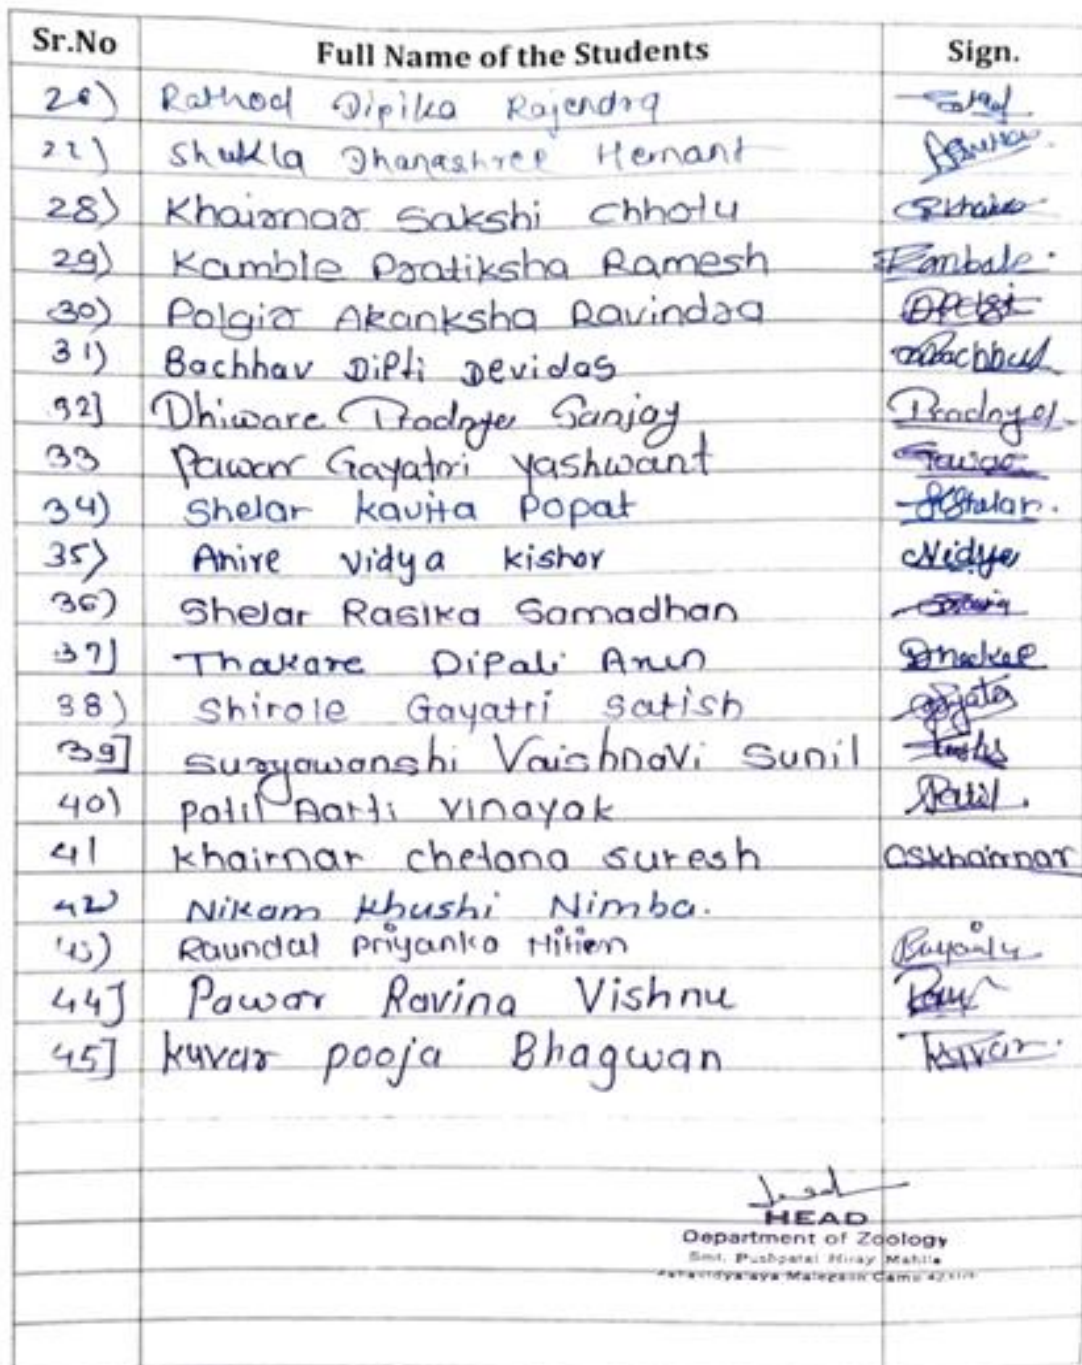 Sr.No Full Name of the Students Sign.
26) Rathod Dipika Rajendra
Shukla Dhanashree Hemant
28) Khairnar Sakshi Chhotu
29) Kamble Pratiksha Ramesh Kambale.
30) Polgir Akanksha Ravindra
31) Bachhav Dipti Devidas
32] Dhiware Pradnya Sanjay Pradnya
33 Pawar Gayatri Yashwant
34) Shelar kavita Popat
35) Ahire vidya kishor Vidya
36) Shelar Rasika Samadhan
37] Thakare Dipali Arun
38) Shirole Gayatri Satish
39] Suryawanshi Vaishnavi Sunil
40) patil Aarti vinayak Patil.
41 khairnar chetana suresh CSkhairnar
42) Nikam Khushi Nimba.
43) Raundal Priyanka
44] Pawar Ravina Vishnu
45] kuvar pooja Bhagwan Kuvar.
HEAD
Department of Zoology
Smt. Pushpatai Hiray Mahila
Malegaon Camp